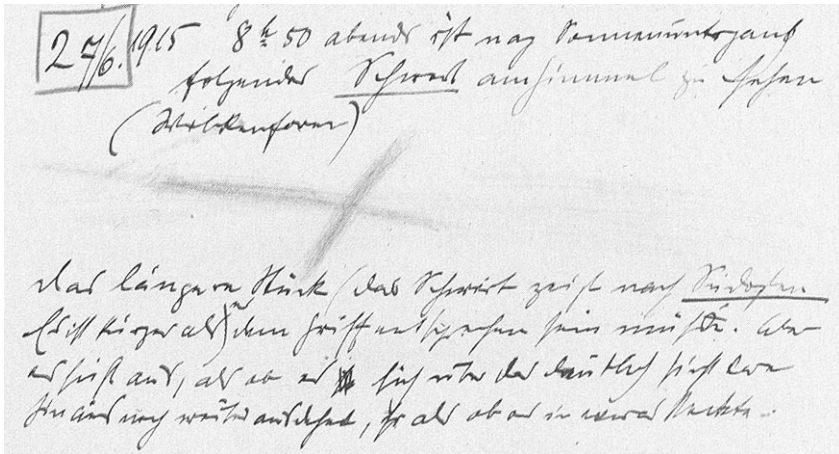 27/6. 1915 8h 50 abends ist nach Sonnenuntergang
folgendes Schwert am Himmel zu sehen
(Wolkenform)
das längere Stück (das Schwert zeigt nach Südosten
(Es ist kürzer als) dem Griff entsprechen sein müßte. Aber
es sieht aus, als ob es sich über das deutlich sichtbare
hinaus noch weiter ausdehnt, als ob es in etwas steckte.